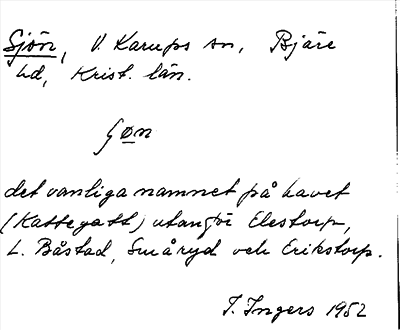 Sjön, V. Karups sn, Bjäre
hd, Krist. län.
ʃøn
det vanliga namnet på havet
(Kattegatt) utanför Elestorp,
L. Båstad, Småryd och Erikstorp.
I. Ingers 1952